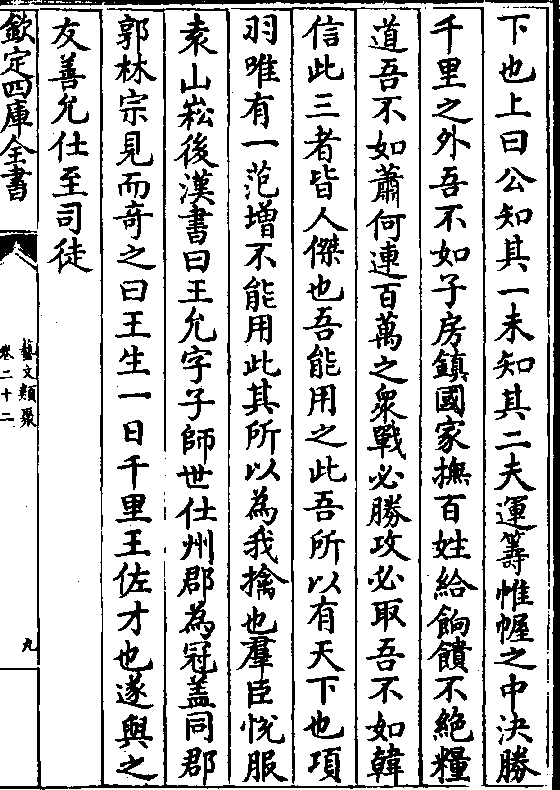 下也上曰公知其一未知其二夫運籌帷幄之中決勝
千里之外吾不如子房鎮國家撫百姓給餉饋不絶糧
道吾不如蕭何連百萬之衆戰必勝攻必取吾不如韓
信此三者皆人傑也吾能用之此吾所以有天下也項
羽唯有一范增不能用此其所以為我擒也羣臣悅服
袁山崧後漢書曰王允字子師世仕州郡為冠盖同郡
郭林宗見而竒之曰王生一日千里王佐才也遂與之
友善允仕至司徒
欽定四庫全書
藝文類聚
卷二十二
九